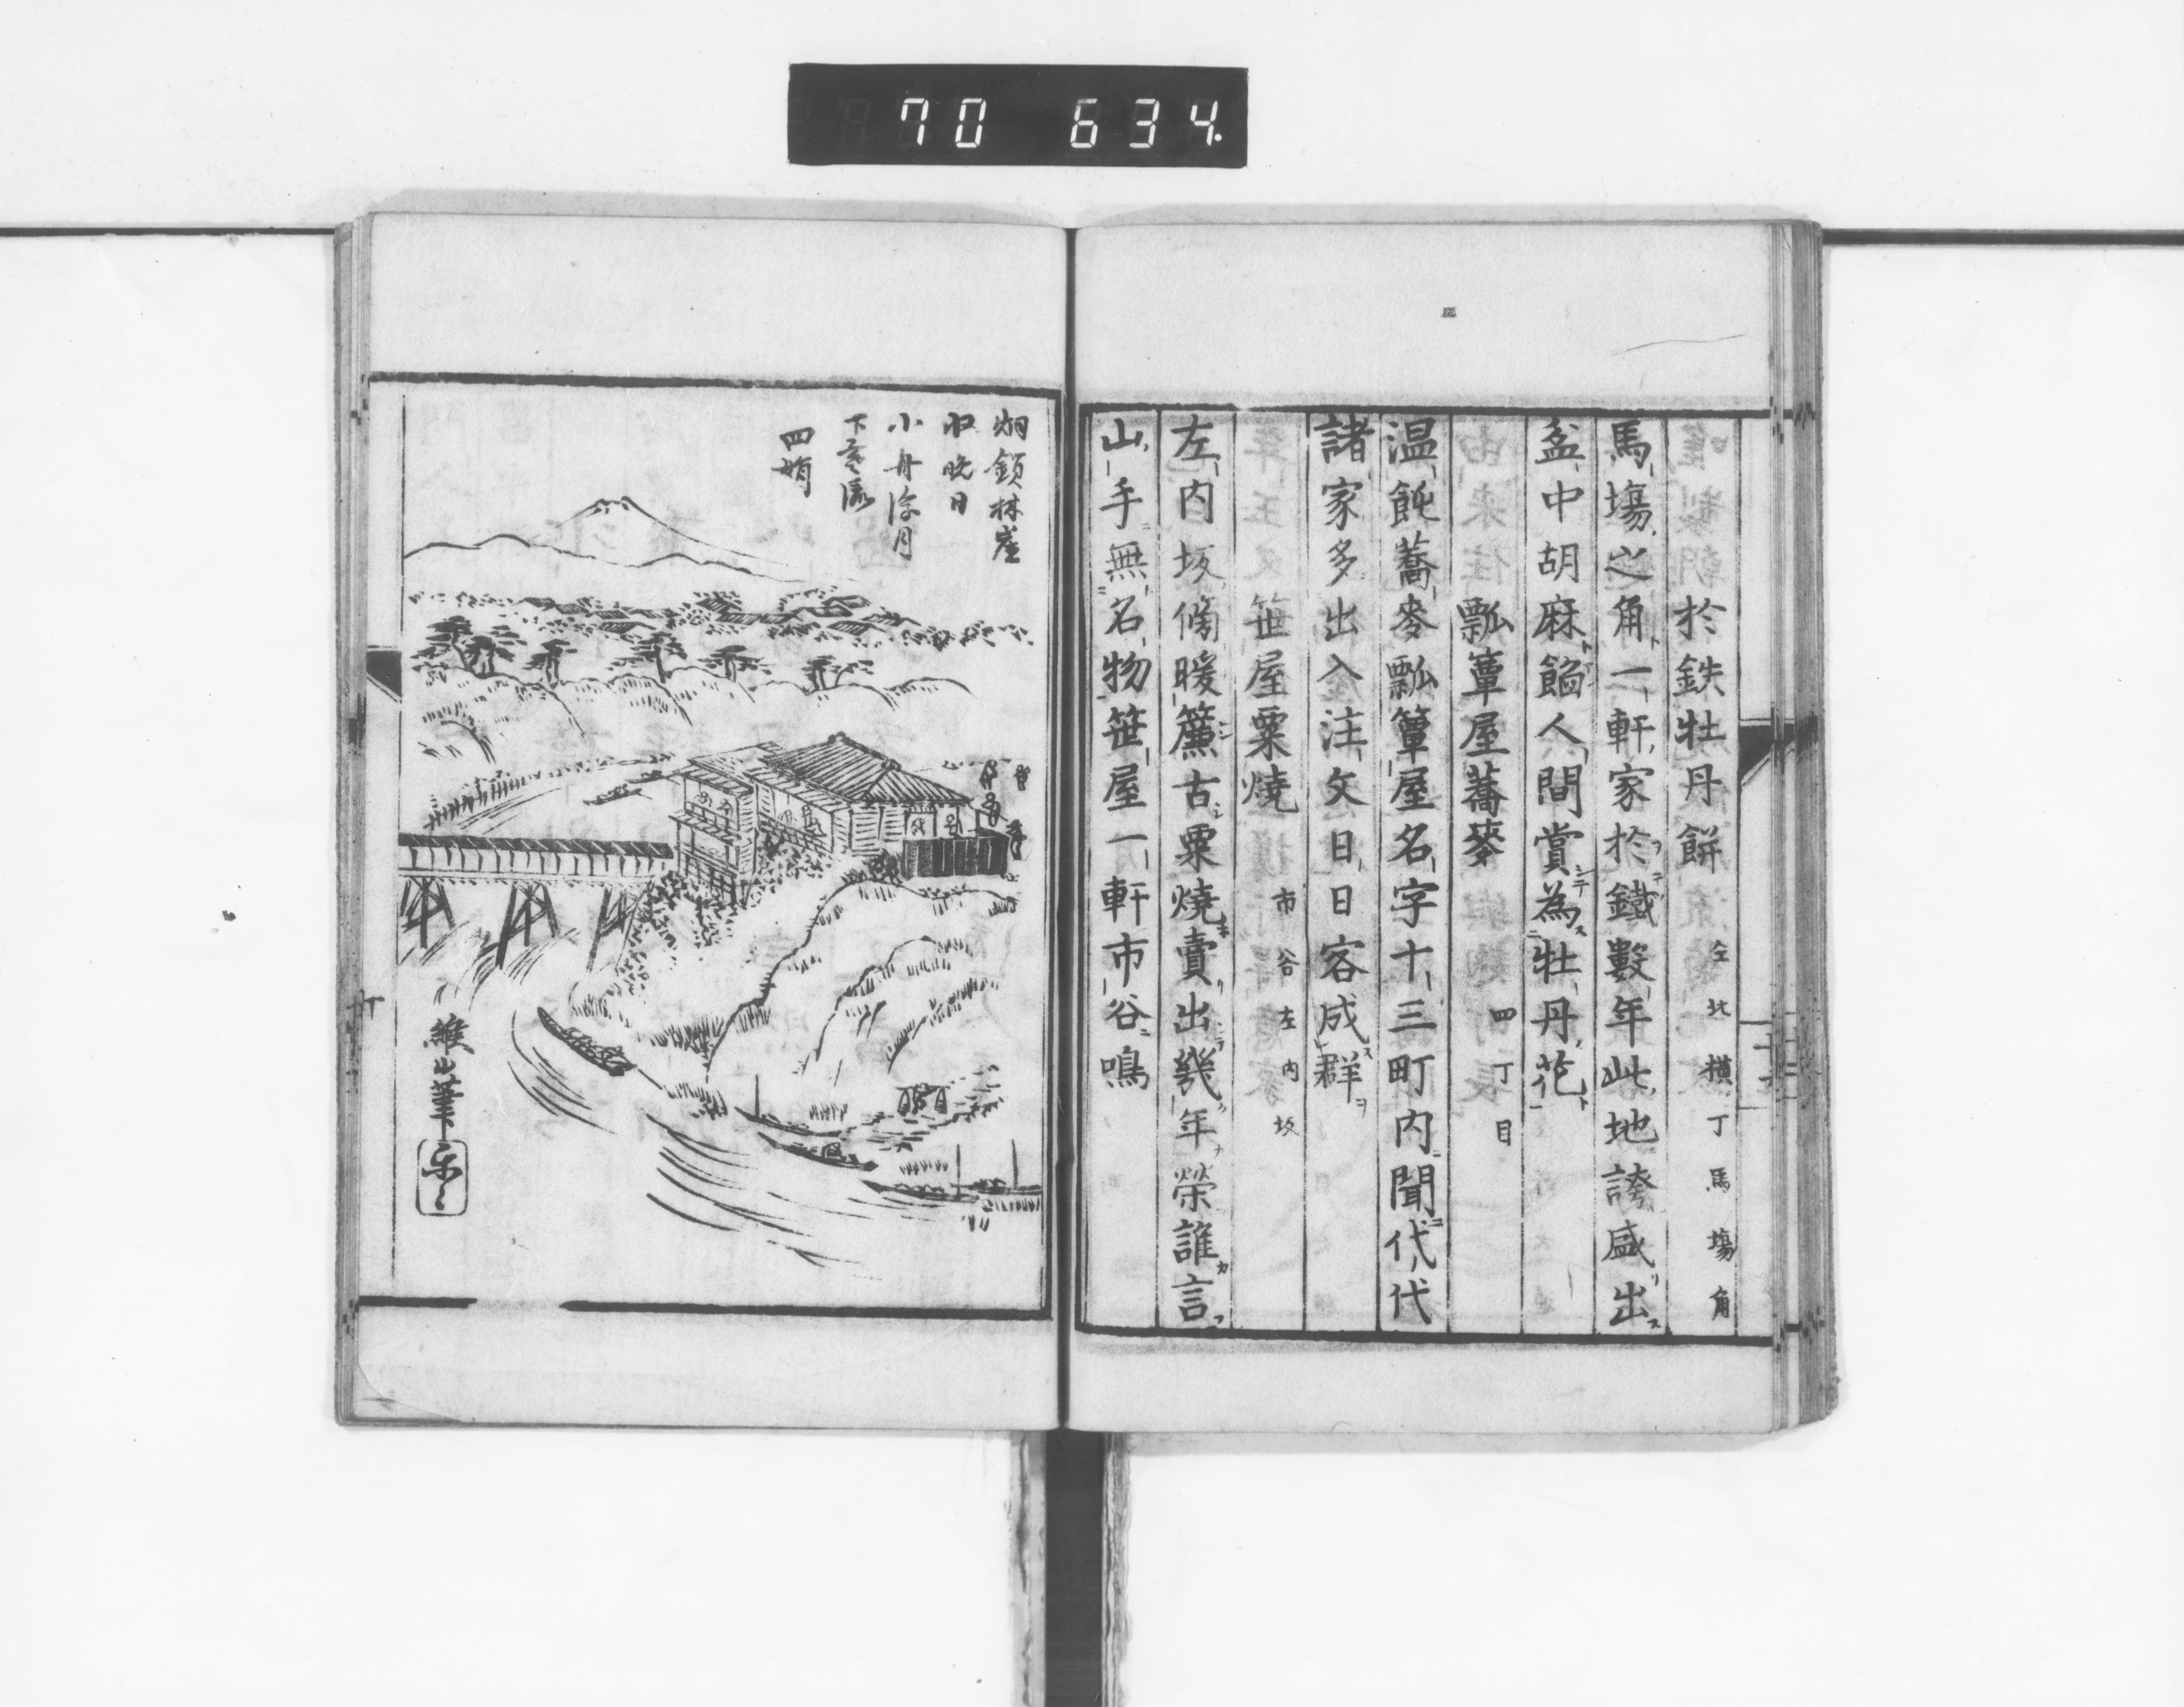 70 634
於鉄牡丹餅 仝北横丁馬塲角
馬塲之角一軒家於鐵數年此地誇盛出
盆中胡麻餡人間賞為牡丹花
瓢簞屋蕎麥 四丁目
温飩蕎麥瓢簞屋名字十三町内聞代代
諸家多出入注文日日客成群
笹屋粟燒 市谷左内坂
左内坂傍暖簾古粟燒賣出幾年榮誰言
山手無名物笹屋一軒市谷鳴
烟鎖林崖
收晩日
小舟浮月
下寒流
維山筆